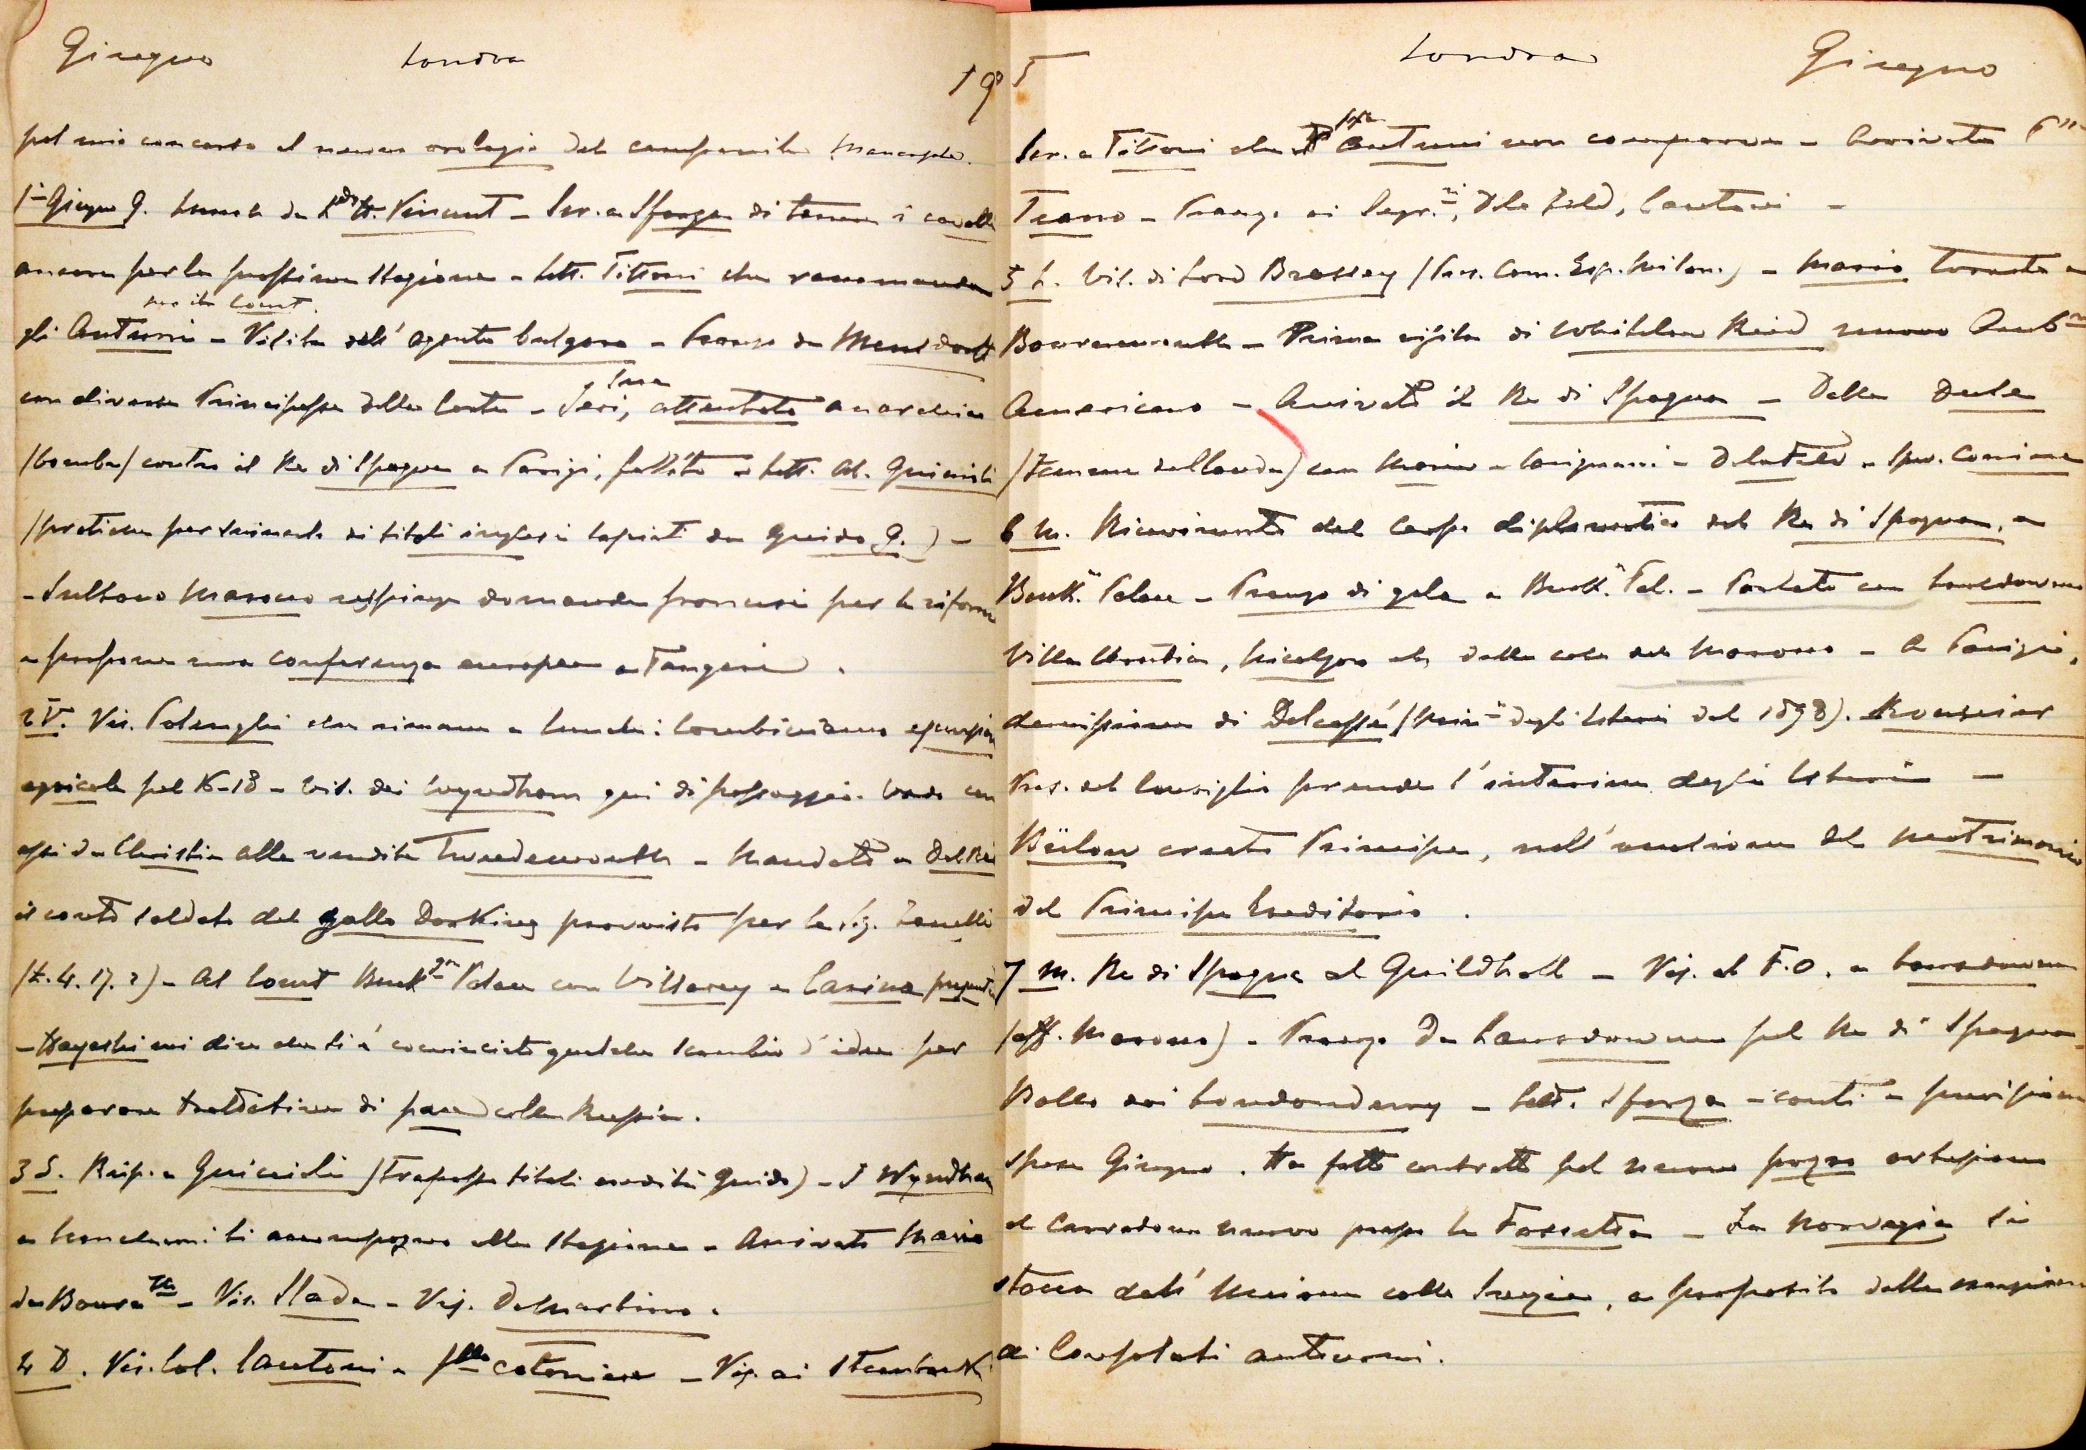 Giugno Londra 190
pel mio concorso al nuovo orologio del campanile
1° Giugno G. Lunch da Ldy H. Vincent - Scr. a Sforza di tenere i cavalli
ancora per la prossima stagione - Lett. Tittoni che raccomanda
per il Court
gli Antuni - Visita dell' agente bulgaro - Pranzo da Mensdorff
con diverse Principesse della Corte - Ieri, sera attentato anarchico
(bomba) contro il Re di Spagna a Parigi, fallito - Lett. Al. Guiccioli
(pratiche per svincolo di titoli inglesi lasciati da Guido G.) -
- Sultano Marocco respinge domande francesi per le riforme
e propone una conferenza europea a Tangeri.
2 V. Vis. Polenghi che rimane a lunch: combiniamo escursione
agricola pel 16-18 - Vis. dei Wyndham qui di passaggio. Vado con
essi da Christie alla vendita Tweedmouth - Mandato a Del Re
il conto saldato del gallo Dorking provvisto per la Sig. Zanelli
(£. 4. 17. 2) - Al Court Buck.gm Palace con Villarey e Carina
- Hayashi mi dice che si è cominciato qualche scambio d'idee per
preparare trattative di pace colla Russia.
3 S. Risp. a Guiccioli (trapasso titoli eredità Guido) - I Wyndham
a li accompagno alla stazione - Arrivato Mario
da Bourn.th - Vis. Slade - Vis. De Martino.
4 D. Vis. Col. Cantoni e p.lla cotoniere - Vis. ai
5 Londra Giugno
Scr. a Tittoni che pfr Antuni non comparve - Arrivata
Teano - Pranzo ai Segr.ri, Dla Feld, Cantoni -
5 L. Vis. di Lord Brassey (Pres. Com. Esp. Milano) - Mario tornato a
Bournemouth - Prima visita di Whitelaw Reid nuovo Amb.re
Americano - Arrivato il Re di Spagna - Dalla Duse
(Femme de Claude) con Mario - Carignani - DlaFeld - Spw.
6 M. Ricevimento del Corpo diplomatico dal Re di Spagna, a
Buck.m Palace - Pranzo di gala a Buck.m Pal. - Parlato con Lansdowne
Villa Urrutia, Nicolson etc. delle cose del Marocco - A Parigi,
demissione di Delcassé (Min.ro degli Esteri dal 1898). Rouvier
Pres. del Consiglio prende l'interim degli Esteri -
Bülow creato Principe, nell'occasione del matrimonio
del Principe Ereditario.
7 M. Re di Spagna al Guildhall - Vis. al F.O. a Lansdowne
(aff. Marocco) - Pranzo da Lansdowne pel Re di Spagna -
Ballo dai Londonderry - Lett. Sforza - conti e previsione
spese Giugno. Ha fatto contratto pel nuovo pozzo artesiano
al nuovo presso la Fossetta - La Norvegia si
stacca dall' Unione colla Svezia, a proposito della
ai Consolati autonomi.